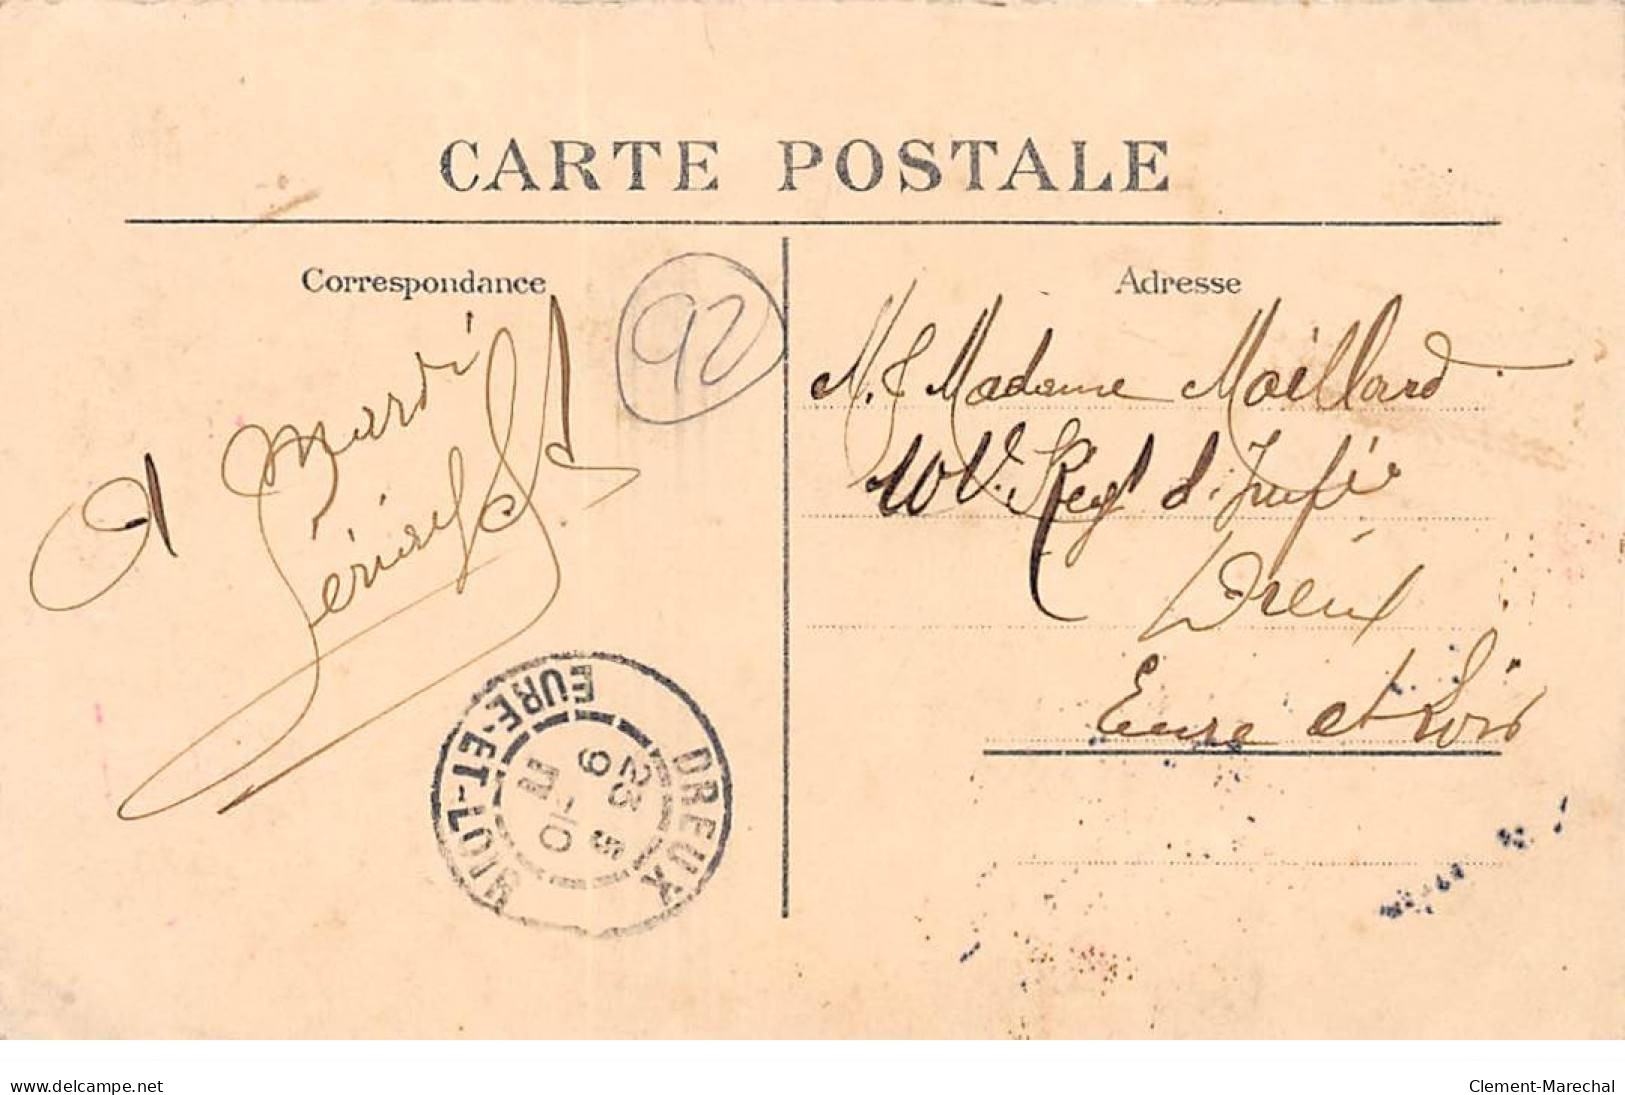 CARTE POSTALE
Correspondance
92
A mardi
Adresse
M. & Madame Maillard
101e. Regt d'Infie
Dreux
Eure et Loir
DREUX
23 - 5
9 - 10
EURE-ET-LOIR
www.delcampe.net
Clement-Marechal